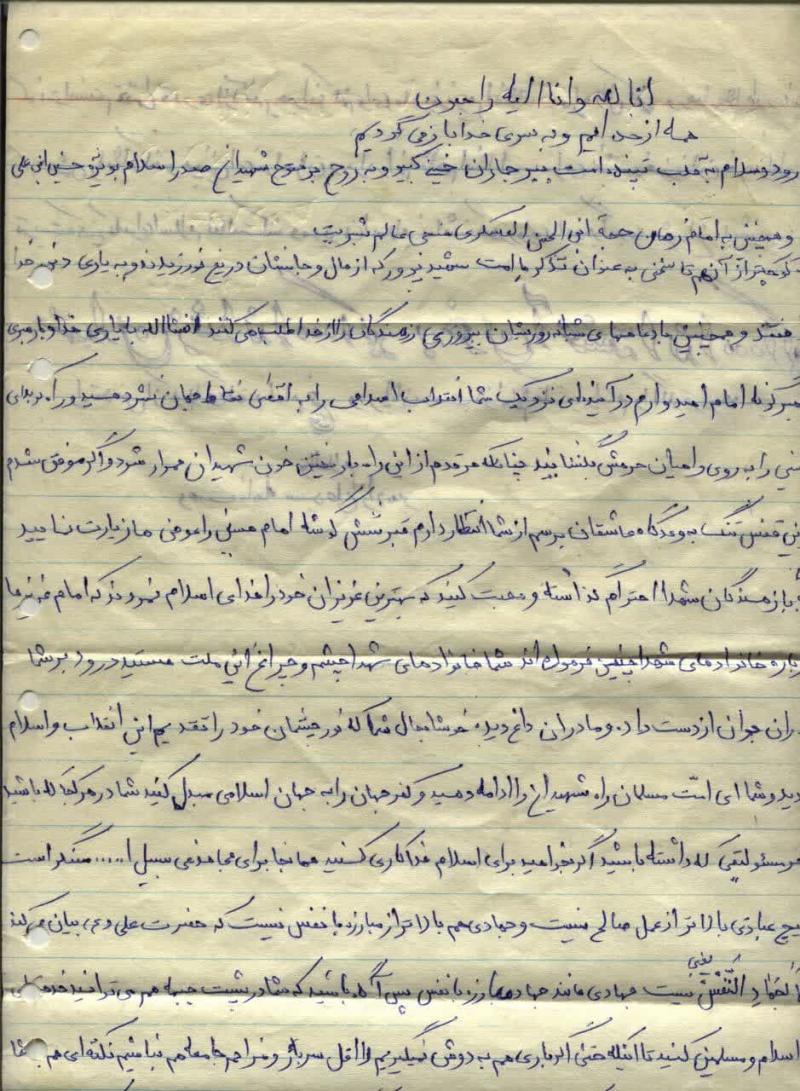 انا لله وانا الیه راجعون
همه از خدائیم و به سوی خدا باز می گردیم
درود و سلام به قلب تپنده امت پیر جماران خمینی کبیر و به روح پر فتوح شهیدان صدر اسلام بویژه حسین ابن علی
و همچنین به امام زمان حجة ابن الحسن العسکری منجی عالم بشریت
تذکر به امت شهید پرور که از مال و جانشان دریغ نورزیدند و به یاری دین خدا
و همچنین با دعاهای شبانه روزیشان پیروزی رزمندگان را از خدا طلب می کنند انشاالله با یاری خدا و با رهبری
امام امیدوارم در آینده ای نزدیک شما انقلاب اسلامی را به اقصی نقاط جهان نشر دهید و راه کربلای
را به روی راهیان حرمش بگشائید چنانکه هر قدم از این راه با ریختن خون شهیدان هموار شد و اگر موفق شدم
قفس تنگ به وعدگاه عاشقان برسم از شما انتظار دارم قبر شش گوشه امام حسین را عوض ما زیارت نمایید
بازماندگان شهدا احترام گذاشته و محبت کنید که بهترین عزیزان خود را فدای اسلام نمودند که امام عزیز ما
درباره خانواده های شهدا چنین فرموده اند شما خانواده های شهدا چشم و چراغ این ملت هستید درود بر شما
جوان از دست داده و مادران داغ دیده خوشا بحال شما که نور چشمان خود را تقدیم این انقلاب و اسلام
و شما ای امت مسلمان راه شهیدان را ادامه دهید و کفر جهان را به جهان اسلامی مبدل کنید شما در هر کجا که باشید
هر مسئولیتی که داشته باشید اگر بخواهید برای اسلام فداکاری کنید همانجا برای مجاهد فی سبیل ا..... سنگر است
هیچ عبادتی بالاتر از عمل صالح نیست و جهادی هم بالاتر از مبارزه با نفس نیست که حضرت علی (ع) بیان می کند
جهاد النفس یعنی نیست جهادی مانند جهاد مبارزه با نفس پس آگاه باشید که شما در پشت جبهه هم می توانید خدمت
اسلام و مسلمین کنید تا اینکه حتی اگر باری هم به دوش نمیگیریم لااقل سربار و مزاحم جامعه هم نباشیم نکته ای هم